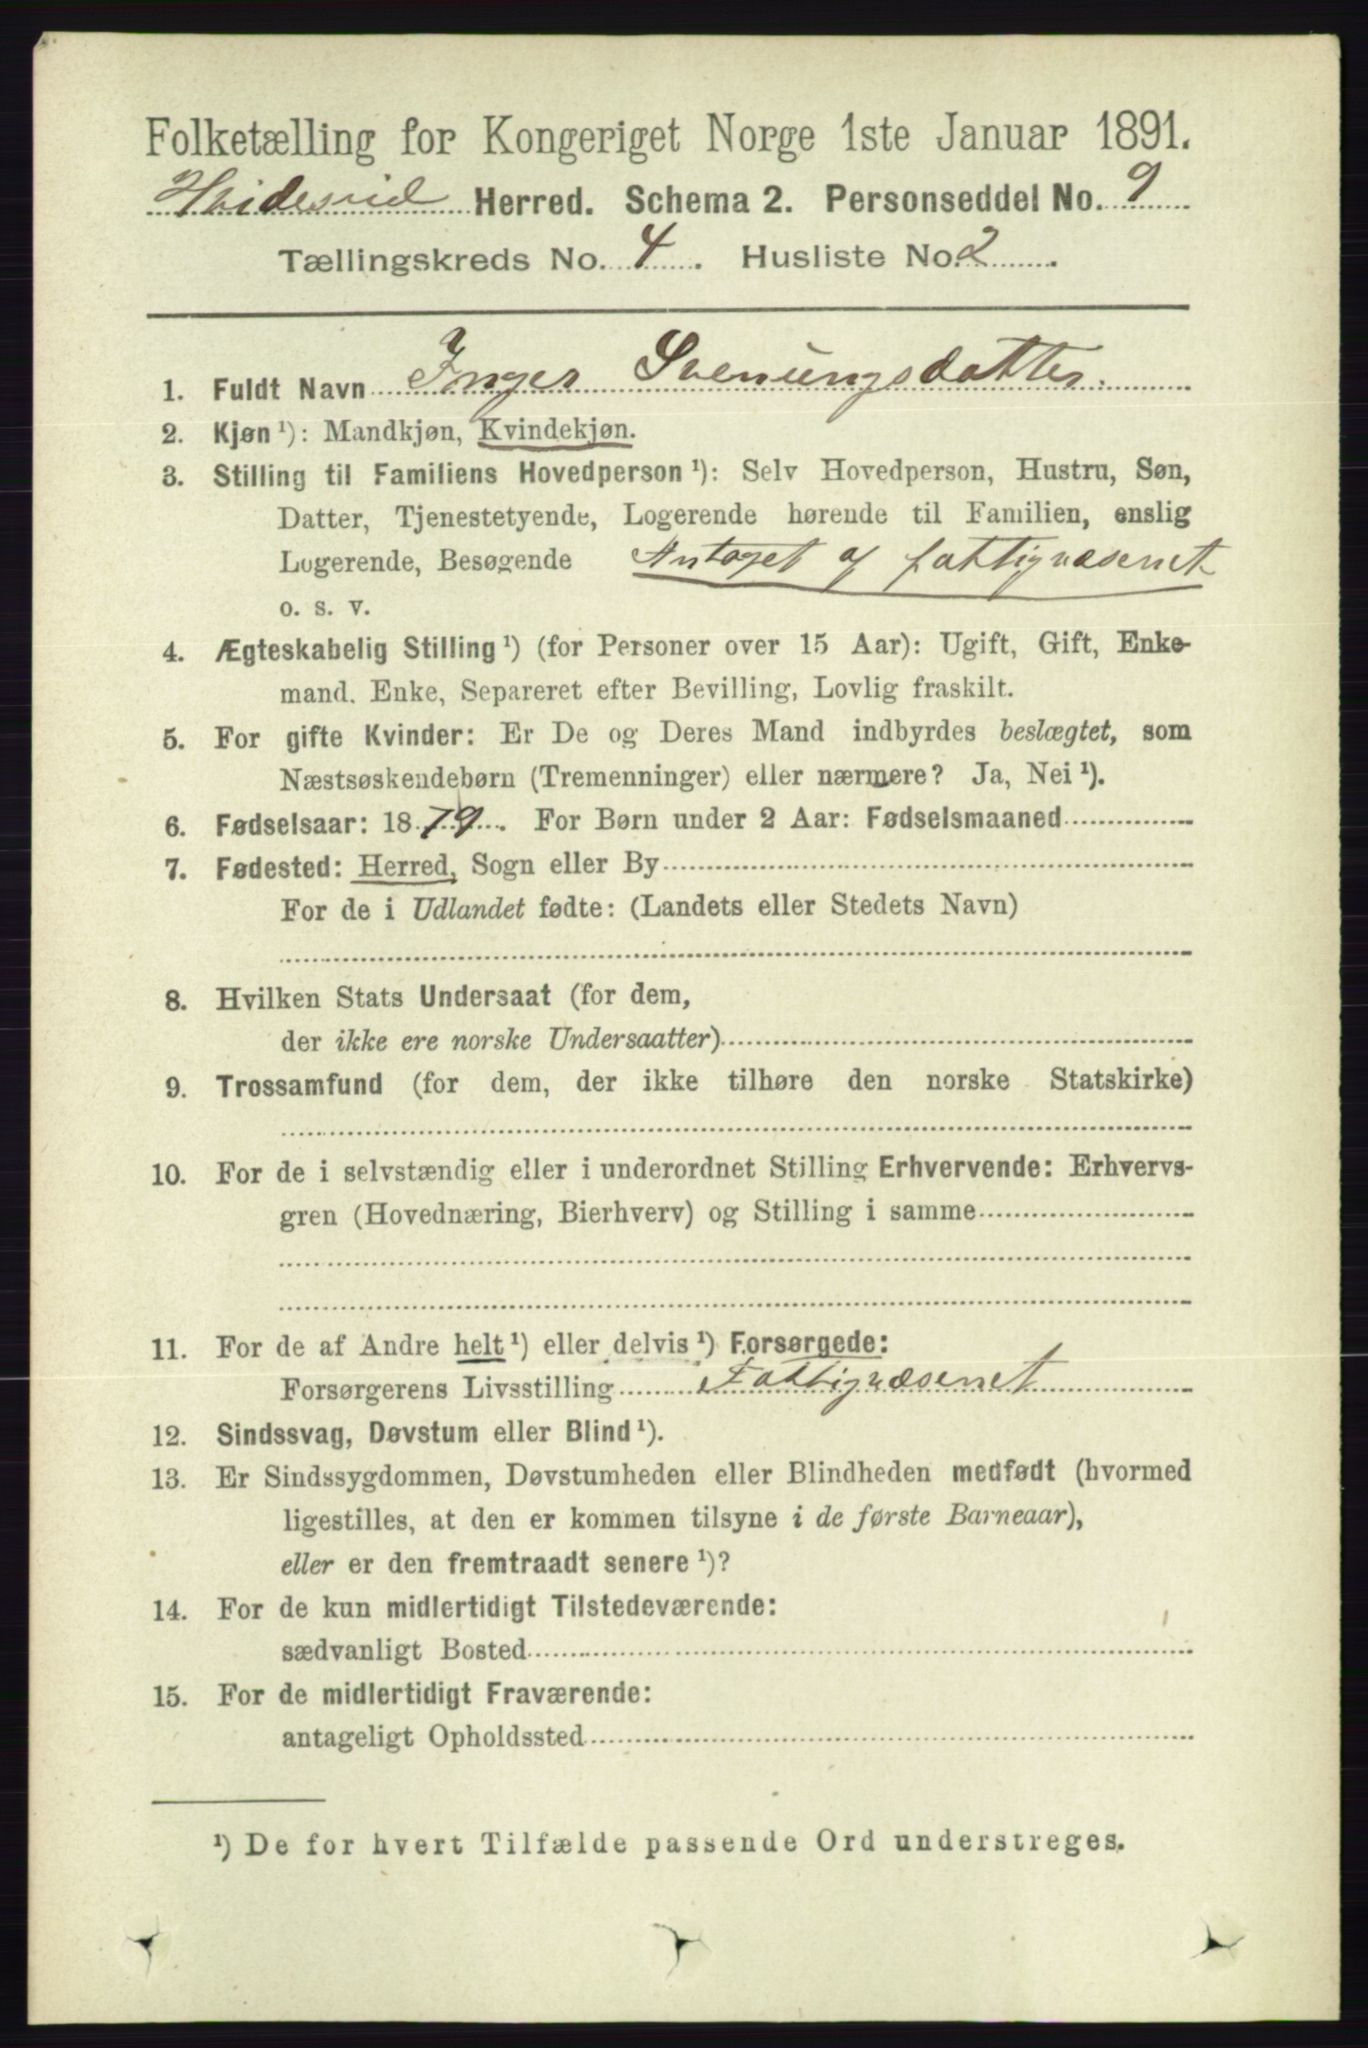 Folketælling for Kongeriget Norge 1ste Januar 1891.
Hvideseid Herred. Schema 2. Personseddel No. 9
Tællingskreds No. 4. Husliste No. 2.
1. Fuldt Navn Inger Svenungsdatter.
2. Kjøn ¹): Mandkjøn, Kvindekjøn.
3. Stilling til Familiens Hovedperson ¹): Selv Hovedperson, Hustru, Søn,
Datter, Tjenestetyende, Logerende hørende til Familien, enslig
Logerende, Besøgende Antaget af fattigvæsenet
o. s. v.
4. Ægteskabelig Stilling ¹) (for Personer over 15 Aar): Ugift, Gift, Enke-
mand. Enke, Separeret efter Bevilling, Lovlig fraskilt.
5. For gifte Kvinder: Er De og Deres Mand indbyrdes beslægtet, som
Næstsøskendebørn (Tremenninger) eller nærmere? Ja, Nei ¹).
6. Fødselsaar: 1879. For Børn under 2 Aar: Fødselsmaaned
7. Fødested: Herred, Sogn eller By
For de i Udlandet fødte: (Landets eller Stedets Navn)
8. Hvilken Stats Undersaat (for dem,
der ikke ere norske Undersaatter)
9. Trossamfund (for dem, der ikke tilhøre den norske Statskirke)
10. For de i selvstændig eller i underordnet Stilling Erhvervende: Erhvervs-
gren (Hovednæring, Bierhverv) og Stilling i samme
11. For de af Andre helt ¹) eller delvis ¹) Forsørgede:
Forsørgerens Livsstilling Fattigvæsenet
12. Sindssvag, Døvstum eller Blind ¹).
13. Er Sindssygdommen, Døvstumheden eller Blindheden medfødt (hvormed
ligestilles, at den er kommen tilsyne i de første Barneaar),
eller er den fremtraadt senere ¹)?
14. For de kun midlertidigt Tilstedeværende:
sædvanligt Bosted
15. For de midlertidigt Fraværende:
antageligt Opholdssted
¹) De for hvert Tilfælde passende Ord understreges.